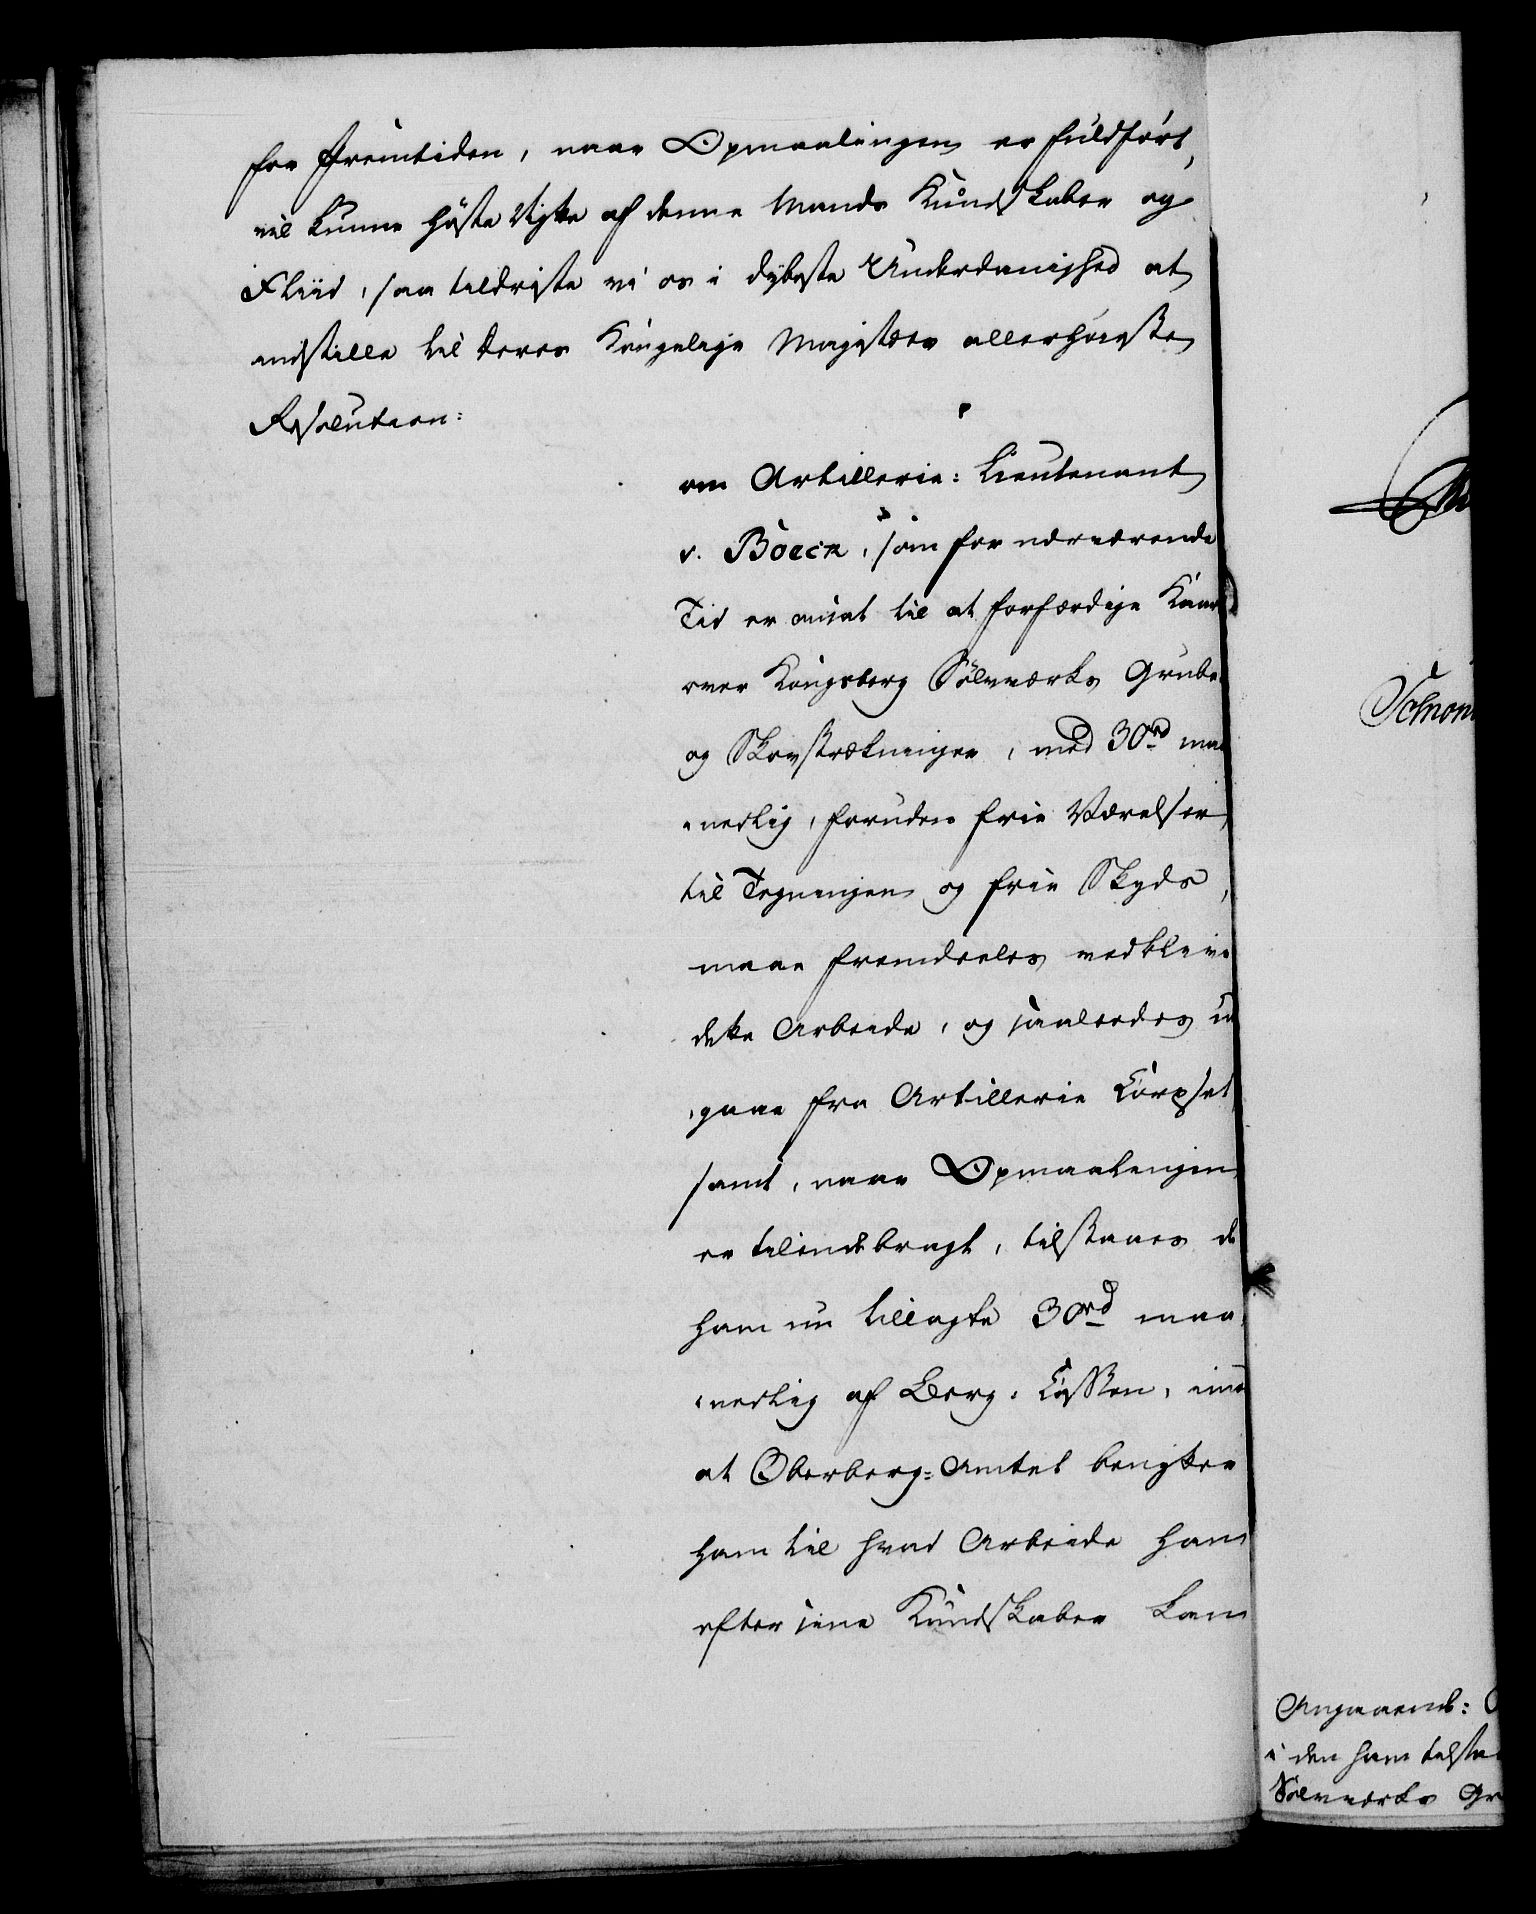 for Fremtiden, naar Opmaalingen er fuldført,
vil kunne høste Nytte af denne Mands Kundskaber og
Fliid, saa tildriste vi os i dybeste Underdanighed at
indstille til Deres Kongelige Majestæts allerhøieste
Resolution:
om Artillerie-Lieutenant
v. Böeck, som for nærværende
Tid er ansat til at forfærdige Kaart
over Kongsberg Sølvværks Grube
og Skovstrækninger, med 30 rd maa
nedlig, foruden frie Værelser
til Tegningen og frie Skyds,
maae fremdeeles vedblive
dette Arbeide, og saaledes ud
gaae fra Artillerie Corpset
samt, naar Opmaalingen
er tilendebragt, tilstaaes de
ham nu tillagte 30 rd maa
nedlig af Berg-Cassen, imod
at Oberberg-Amtet benytter
ham til hvad Arbeide han
efter sine Kundskaber kan
Angaaende:
i den ham tilsta
Sølvværks Gr